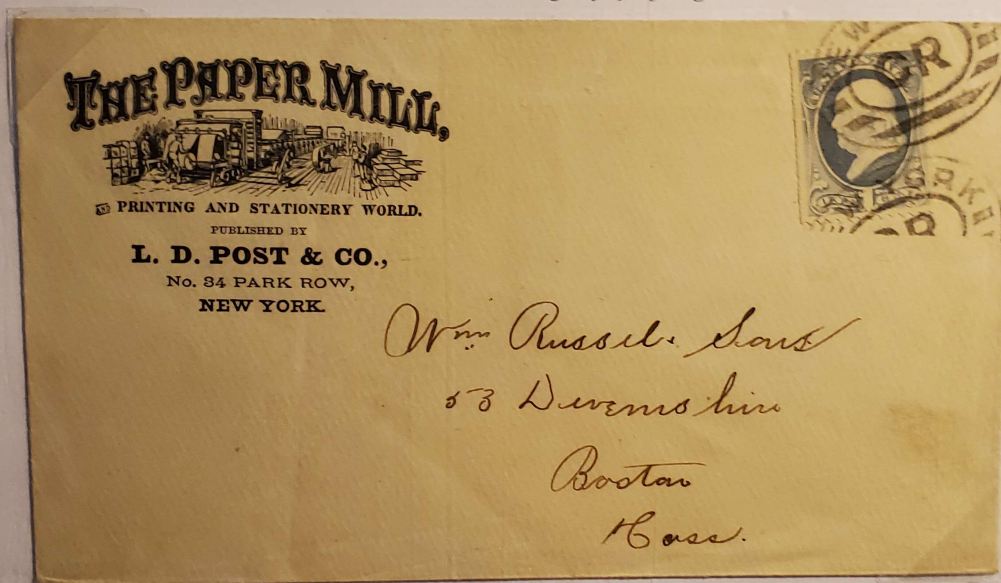 THE PAPER MILL,
AND PRINTING AND STATIONERY WORLD.
PUBLISHED BY
L. D. POST & CO.,
No. 34 PARK ROW,
NEW YORK.
GR
ORK N
GR
Wm Russel. Sons
53 Devemshire
Boston
Mass.